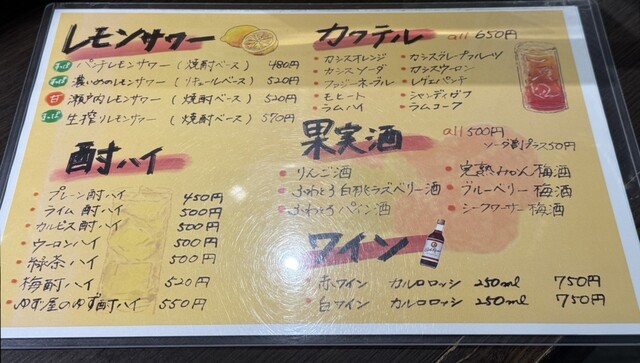 レモンサワー
すっぱ パンチレモンサワー (焼酎ベース) 480円
すっぱ 濃いめのレモンサワー (リキュールベース) 520円
甘 瀬戸内レモンサワー (焼酎ベース) 520円
すっぱ 生搾りレモンサワー (焼酎ベース) 570円
酎ハイ
プレーン酎ハイ 450円
ライム酎ハイ 500円
カルピス酎ハイ 500円
ウーロンハイ 500円
緑茶ハイ 500円
梅酎ハイ 520円
ゆず屋のゆず酎ハイ 550円
カクテル all 650円
カシスオレンジ
カシスソーダ
ファジーネーブル
モヒート
ラムハイ
カシスグレープフルーツ
カシスウーロン
レゲエパンチ
シャンディガフ
ラムコーク
果実酒 all 500円
ソーダ割プラス50円
りんご酒
ふわとろ白桃とラズベリー酒
ふわとろパイン酒
完熟みかん梅酒
ブルーベリー梅酒
シークワーサー梅酒
ワイン
赤ワイン カルロロッシ 250ml 750円
白ワイン カルロロッシ 250ml 750円